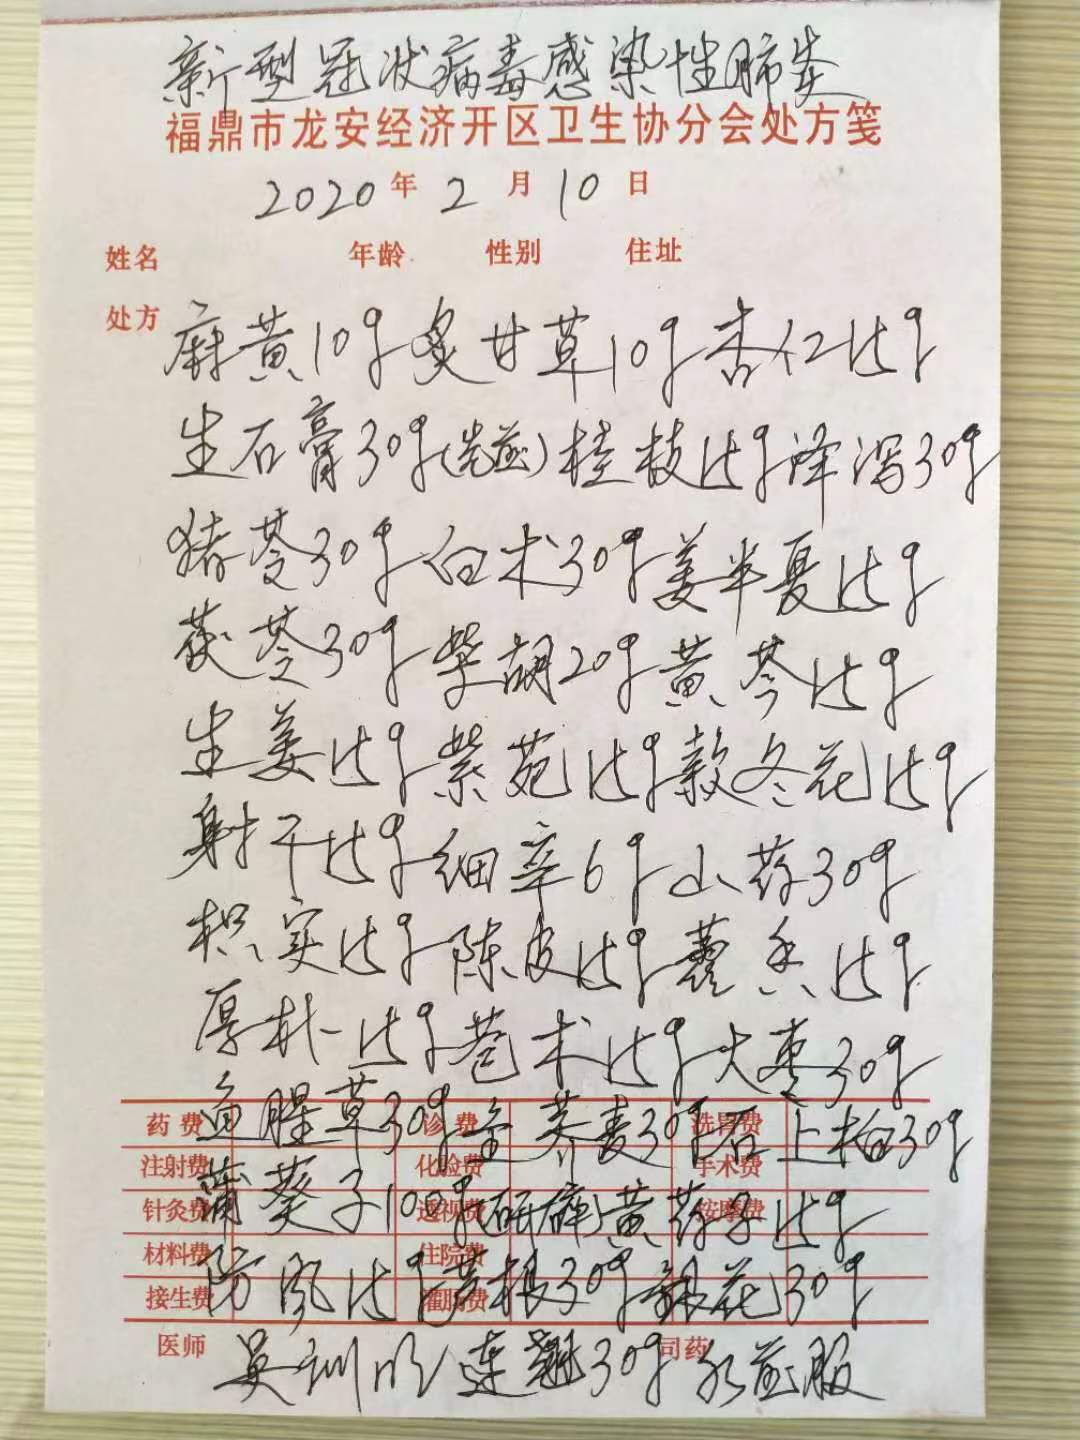 新型冠状病毒感染性肺炎
福鼎市龙安经济开区卫生协分会处方笺
2020年2月10日
姓名 年龄 性别 住址
处方
麻黄10g 炙甘草10g 杏仁15g
生石膏30g(先煎) 桂枝15g 泽泻30g
猪苓30g 白术30g 姜半夏15g
茯苓30g 柴胡20g 黄芩15g
生姜15g 紫苑15g 款冬花15g
射干15g 细辛6g 山药30g
枳实15g 陈皮15g 藿香15g
厚朴15g 苍术15g 大枣30g
鱼腥草30g 金荞麦30g 石上柏30g
药费 诊费 洗胃费
注射费 化验费 手术费
葵子100g(研碎) 黄药子15g
针灸费 透视费 按摩费
材料费 住院费
防风15g 根30g 银花30g
接生费 灌肠费
医师 司药
吴训 连翘30g 水煎服